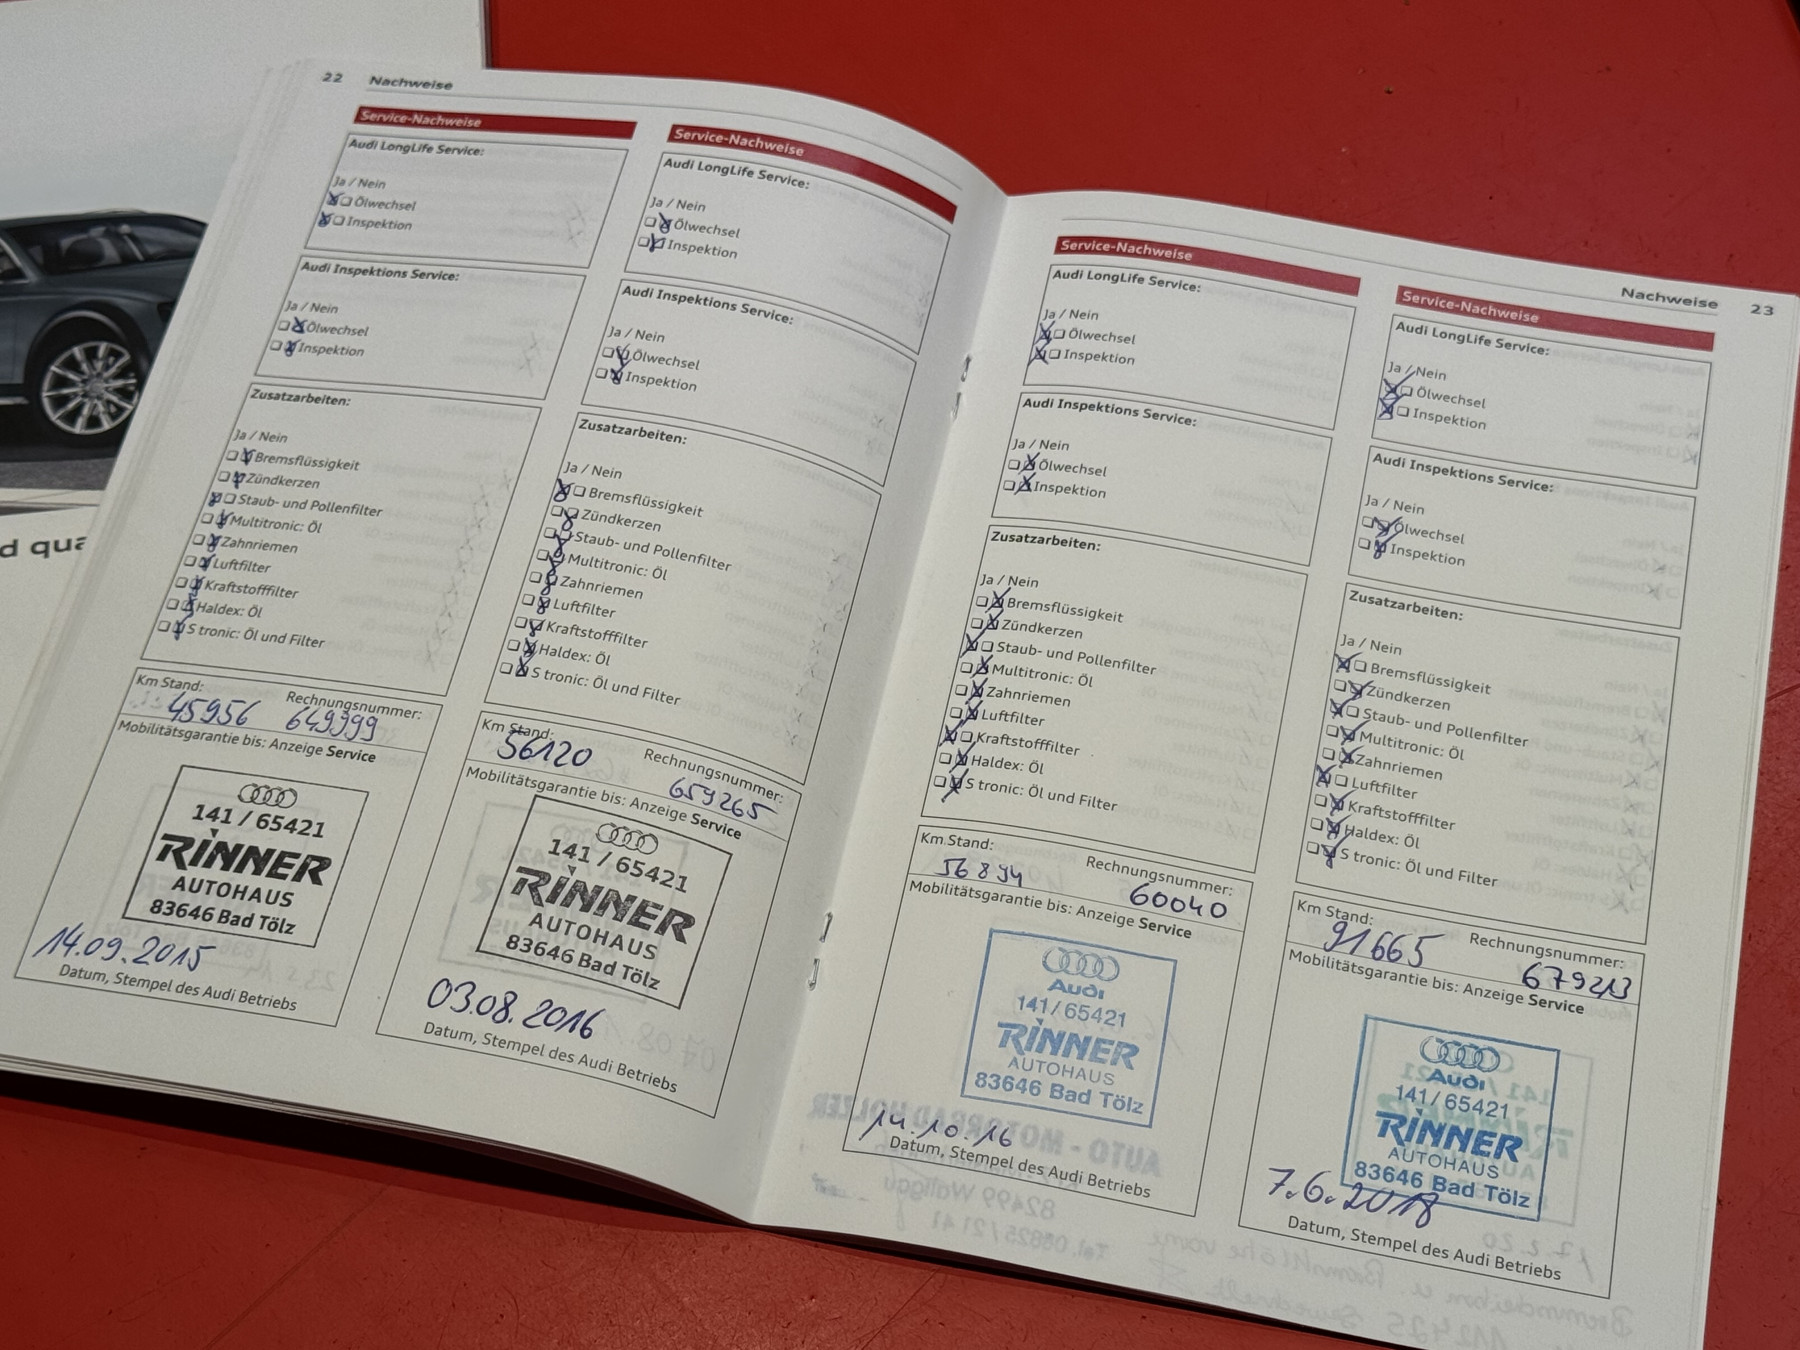 22 Nachweise
Service-Nachweise
Audi LongLife Service:
Ja / Nein
Ölwechsel
Inspektion
Audi Inspektions Service:
Ja / Nein
Ölwechsel
Inspektion
Zusatzarbeiten:
Ja / Nein
Bremsflüssigkeit
Zündkerzen
Staub- und Pollenfilter
Multitronic: Öl
Zahnriemen
Luftfilter
Kraftstofffilter
Haldex: Öl
S tronic: Öl und Filter
Km Stand: Rechnungsnummer:
45956 649999
Mobilitätsgarantie bis: Anzeige Service
141 / 65421
RINNER
AUTOHAUS
83646 Bad Tölz
14.09.2015
Datum, Stempel des Audi Betriebs
Service-Nachweise
Audi LongLife Service:
Ja / Nein
Ölwechsel
Inspektion
Audi Inspektions Service:
Ja / Nein
Ölwechsel
Inspektion
Zusatzarbeiten:
Ja / Nein
Bremsflüssigkeit
Zündkerzen
Staub- und Pollenfilter
Multitronic: Öl
Zahnriemen
Luftfilter
Kraftstofffilter
Haldex: Öl
S tronic: Öl und Filter
Km Stand: Rechnungsnummer:
56120 659265
Mobilitätsgarantie bis: Anzeige Service
141 / 65421
RINNER
AUTOHAUS
83646 Bad Tölz
03.08.2016
Datum, Stempel des Audi Betriebs
Nachweise 23
Service-Nachweise
Audi LongLife Service:
Ja / Nein
Ölwechsel
Inspektion
Audi Inspektions Service:
Ja / Nein
Ölwechsel
Inspektion
Zusatzarbeiten:
Ja / Nein
Bremsflüssigkeit
Zündkerzen
Staub- und Pollenfilter
Multitronic: Öl
Zahnriemen
Luftfilter
Kraftstofffilter
Haldex: Öl
S tronic: Öl und Filter
Km Stand: Rechnungsnummer:
56894 60040
Mobilitätsgarantie bis: Anzeige Service
Audi
141 / 65421
RINNER
AUTOHAUS
83646 Bad Tölz
14.10.16
Datum, Stempel des Audi Betriebs
Service-Nachweise
Audi LongLife Service:
Ja / Nein
Ölwechsel
Inspektion
Audi Inspektions Service:
Ja / Nein
Ölwechsel
Inspektion
Zusatzarbeiten:
Ja / Nein
Bremsflüssigkeit
Zündkerzen
Staub- und Pollenfilter
Multitronic: Öl
Zahnriemen
Luftfilter
Kraftstofffilter
Haldex: Öl
S tronic: Öl und Filter
Km Stand: Rechnungsnummer:
91665 679213
Mobilitätsgarantie bis: Anzeige Service
Audi
141 / 65421
RINNER
AUTOHAUS
83646 Bad Tölz
7.6.2018
Datum, Stempel des Audi Betriebs